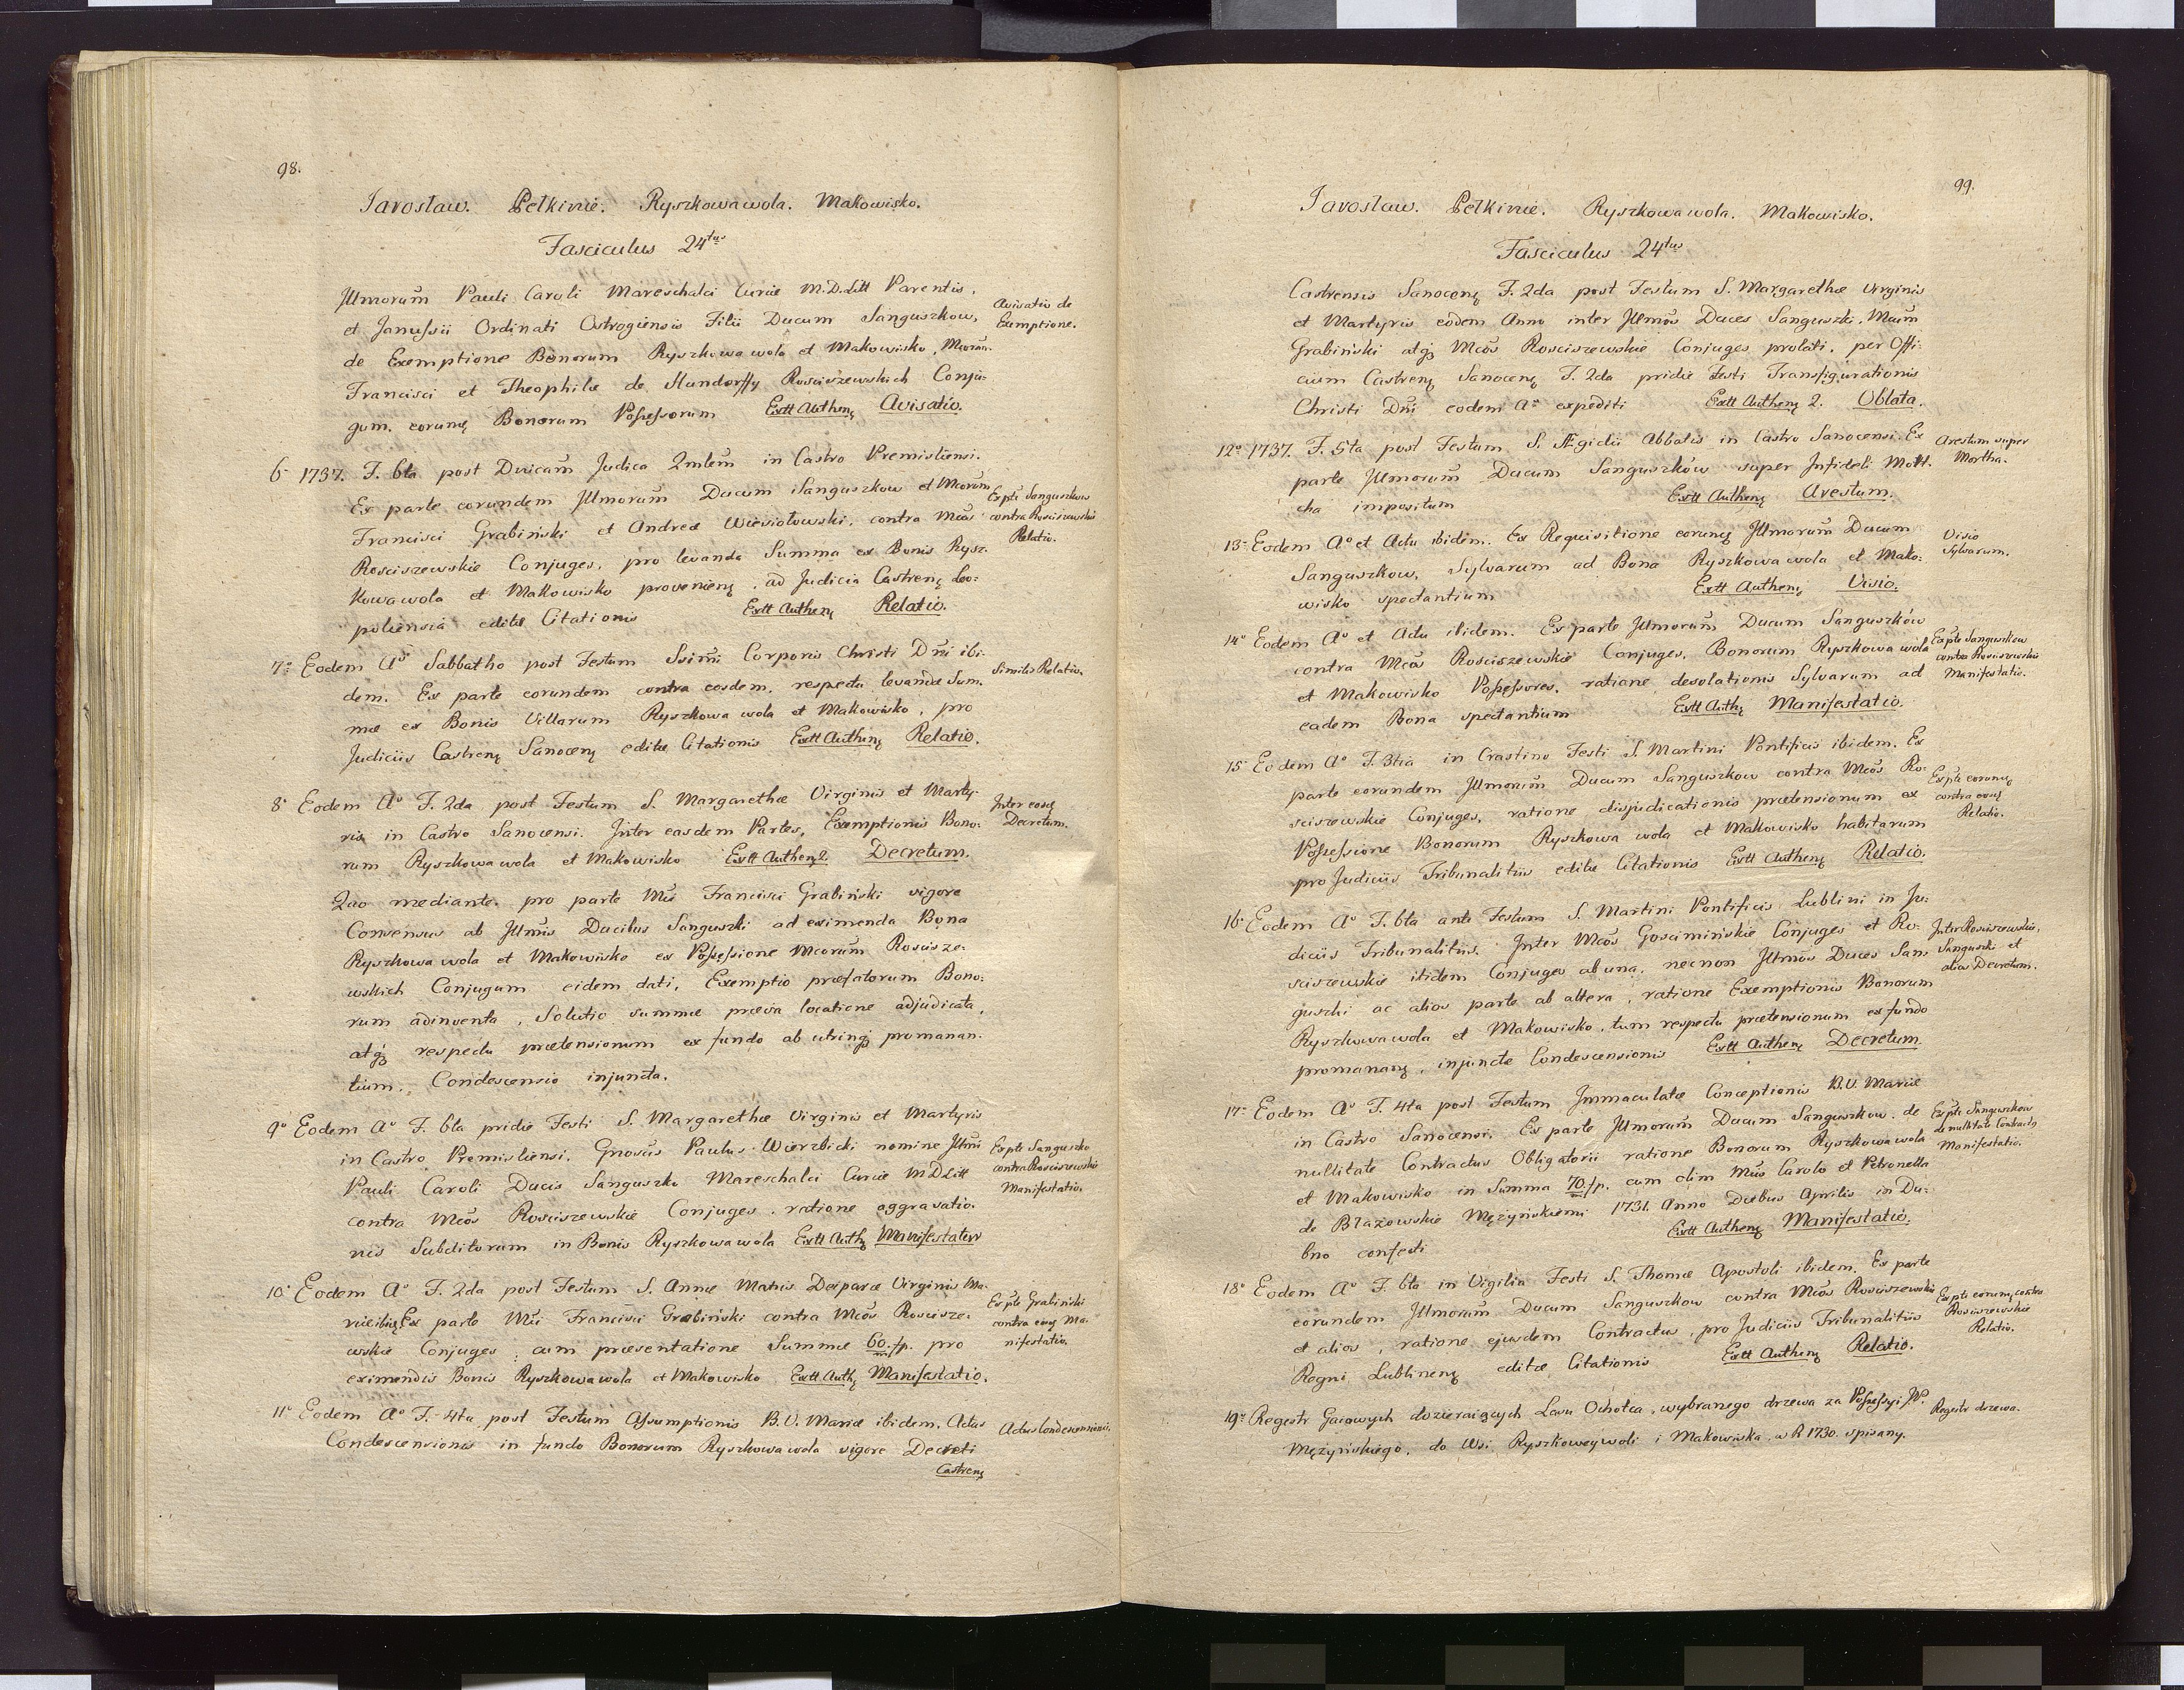 98.
Jarosław. Pełkinie. Ryszkowawola. Makowisko.
Fasciculus 24tus
Illmorum Pauli Caroli Mareschalci Curiæ M.D.Litt Parentis,
et Janussii Ordinati Ostrogiensis Filii Ducum Sanguszkow,
de Exemptione Bonorum Ryszkowawola et Makowisko, Mcorum
Francisci et Theophilæ de Hundorffy Rosciszewskich Conju:
gum, eorumq Bonorum Possessorum Extt Authenq Avisatio.
Avisatio de
Exmptione.
6º 1737. F. 6ta post Dnicam Judica Qmlem in Castro Premisliensi.
Ex parte eorundem Illmorum Ducum Sanguszkow et Mcorum
Francisci Grabiński et Andreæ Wiesiołowski, contra Mcos
Rosciszewskie Conjuges, pro levanda Summa ex Bonis Rysz:
kowawola et Makowisko provenienq, ad Judicia Castrenq Leo:
poliensia editæ Citationis Extt Authenq Relatio.
Ex pte Sanguszkow
contra Rosciszewskie
Relatio.
7º Eodem Aº Sabbatho post Festum Ssimi Corporis Christi Dni ibi:
dem. Ex parte eorundem contra eosdem, respectu levandæ Sum:
mæ ex Bonis Villarum Ryszkowa wola et Makowisko, pro
Judiciis Castrenq Sanocenq editæ Citationis Extt Authenq Relatio.
Similis Relatio.
8º Eodem Aº F. 2da post Festum S. Margarethæ Virginis et Marty:
ris in Castro Sanocensi. Inter easdem Partes, Exemptionis Bono:
rum Ryszkowawola et Makowisko Extt Authenq 2. Decretum.
Inter eosq
Decretum.
Quo mediante, pro parte Mci Francisci Grabiński vigore
Consensus ab Illmis Ducibus Sanguszki ad eximenda Bona
Ryszkowawola et Makowisko ex Possessione Mcorum Roscisze:
wskich Conjugum eidem dati, Exemptio præfatorum Bono:
rum adinventa, Solutio summæ prævia locatione adjudicata,
atqz respectu prætensionum ex fundo ab utrinqz promanan:
tium, Condescensio injuncta.
9º Eodem Aº F. 6ta pridie Festi S. Margarethæ Virginis et Martyris
in Castro Premisliensi. Gnosus Paulus Wierzbicki nomine Illmi
Pauli Caroli Ducis Sanguszko Mareschalci Curiæ M D Litt
contra Mcos Rosciszewskie Conjuges, ratione aggravatio:
nis Subditorum in Bonis Ryszkowawola Extt Authq Manifestatio
Ex pte Sanguszko
contra Rosciszewskie
Manifestatio.
10º Eodem Aº F. 2da post Festum S. Annæ Matris Deiparæ Virginis Ma:
riæ ibiq Ex parte Mci Francisci Grabiński contra Mcos Roscisze:
wskie Conjuges, cum præsentatione Summæ 60./p. pro
eximendis Bonis Ryszkowawola et Makowisko Extt Authq Manifestatio.
Ex pte Grabiński
contra eosq Ma:
nifestatio.
11º Eodem Aº F. 4ta post Festum Assumptionis B.V. Mariæ ibidem. Actus
Condescensionis in fundo Bonorum Ryszkowawola vigore Decreti
Castrenq
Actus Condescensionis.
99.
Jarosław. Pełkinie. Ryszkowawola. Makowisko.
Fasciculus 24tus
Castrensis Sanocenq F. 2da post Festum S. Margarethæ Virginis
et Martyris eodem Anno inter Illmos Duces Sanguszki, Mcum
Grabiński atqz Mcos Rosciszewskie Conjuges prolati, per Offi:
cium Castrenq Sanocenq F. 2da pridie Festi Transfigurationis
Christi Dni eodem Aº expediti Extt Authenq 2. Oblata.
12º 1737. F. 5ta post Festum S. Ægidii Abbatis in Castro Sanocensi. Ex
parte Illmorum Ducum Sanguszków super Infideli Mort.
cha impositum Extt Authenq Arestum.
Arestum super
Mortha.
13º Eodem Aº et Actu ibidem. Ex Requisitione eorunq Illmorum Ducum
Sanguszkow, Sylvarum ad Bona Ryszkowawola et Mako:
wisko spectantium Extt Authenq Visio.
Visio
Sylvarum.
14º Eodem Aº et Actu ibidem. Ex parte Illmorum Ducum Sanguszków
contra Mcos Rosciszewskie Conjuges, Bonorum Ryszkowa wola
et Makowisko Possessores, ratione desolationis Sylvarum ad
eadem Bona spectantium Extt Authq Manifestatio.
Ex pte Sanguszkow
contra Rosciszewskie
Manifestatio.
15º Eodem Aº F. 3tia in Crastino Festi S. Martini Pontificis ibidem. Ex
parte eorundem Illmorum Ducum Sanguszkow contra Mcos Ro:
sciszewskie Conjuges, ratione disjudicationis prætensionum ex
Possessione Bonorum Ryszkowa wola et Makowisko habitarum
pro Judiciis Tribunalitiis editæ Citationis Extt Authenq Relatio.
Ex pte eorunq
contra eosq
Relatio.
16º Eodem Aº F. 6ta ante Festum S. Martini Pontificis Lublini in Ju:
diciis Tribunalitiis. Inter Mcos Gosciminskie Conjuges et Ro:
sciszewskie itidem Conjuges ab una, necnon Illmos Duces San:
guszki ac alios parte ab altera, ratione Exemptionis Bonorum
Ryszkowawola et Makowisko, tum respectu prætensionum ex fundo
promananq, injunctæ Condescensionis Extt Authenq Decretum
Inter Rosciszewskie,
Sanguszki et
alios Decretum.
17º Eodem Aº F. 4ta post Festum Immaculatæ Conceptionis B.V. Mariæ
in Castro Sanocensi. Ex parte Illmorum Ducum Sanguszkow, de
nullitate Contractus Obligatorii ratione Bonorum Ryszkowawola
et Makowisko in Summa 70./p. cum olim Mcis Carolo et Petronella
de Błazowskie Mężyńskiemi 1731. Anno Diebus Aprilis in Du:
bno confecti Extt Authenq Manifestatio.
Ex pte Sanguszkow
de nullitate Contractq
Manifestatio.
18º Eodem Aº F. 6ta in Vigilia Festi S. Thomæ Apostoli ibidem. Ex parte
eorundem Illmorum Ducum Sanguszkow contra Mcos Rosciszewskie
et alios, ratione ejusdem Contractus, pro Judiciis Tribunalitiis
Regni Lublinenq editæ Citationis Extt Authenq Relatio.
Ex pte eorunq contra
Rosciszewskie
Relatio.
19º Regestr Gaiowych dozieraiących Lasu Ochotca, wybranego drzewa za Possessyi JP.
Mężyńskiego, do Wsi Ryszkoweywoli i Makowiska, w R 1730. spisany.
Regestr drzewa.